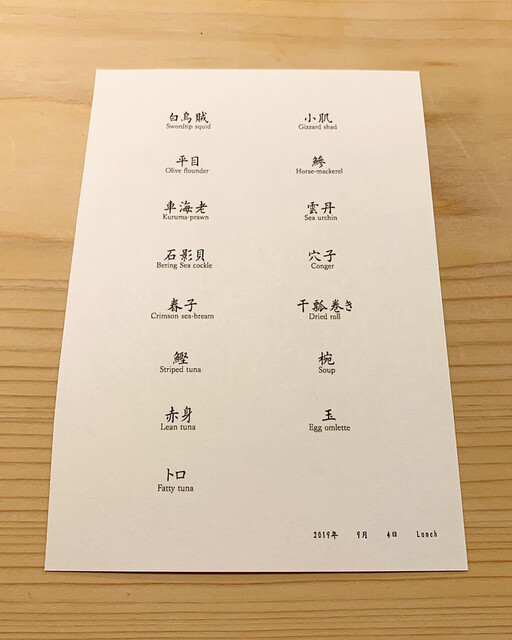 白烏賊
Swordtip squid
平目
Olive flounder
車海老
Kuruma-prawn
石影貝
Bering Sea cockle
春子
Crimson sea-bream
鰹
Striped tuna
赤身
Lean tuna
トロ
Fatty tuna
小肌
Gizzard shad
鯵
Horse-mackerel
雲丹
Sea urchin
穴子
Conger
干瓢巻き
Dried roll
椀
Soup
玉
Egg omlette
2019年 9月 4日 Lunch